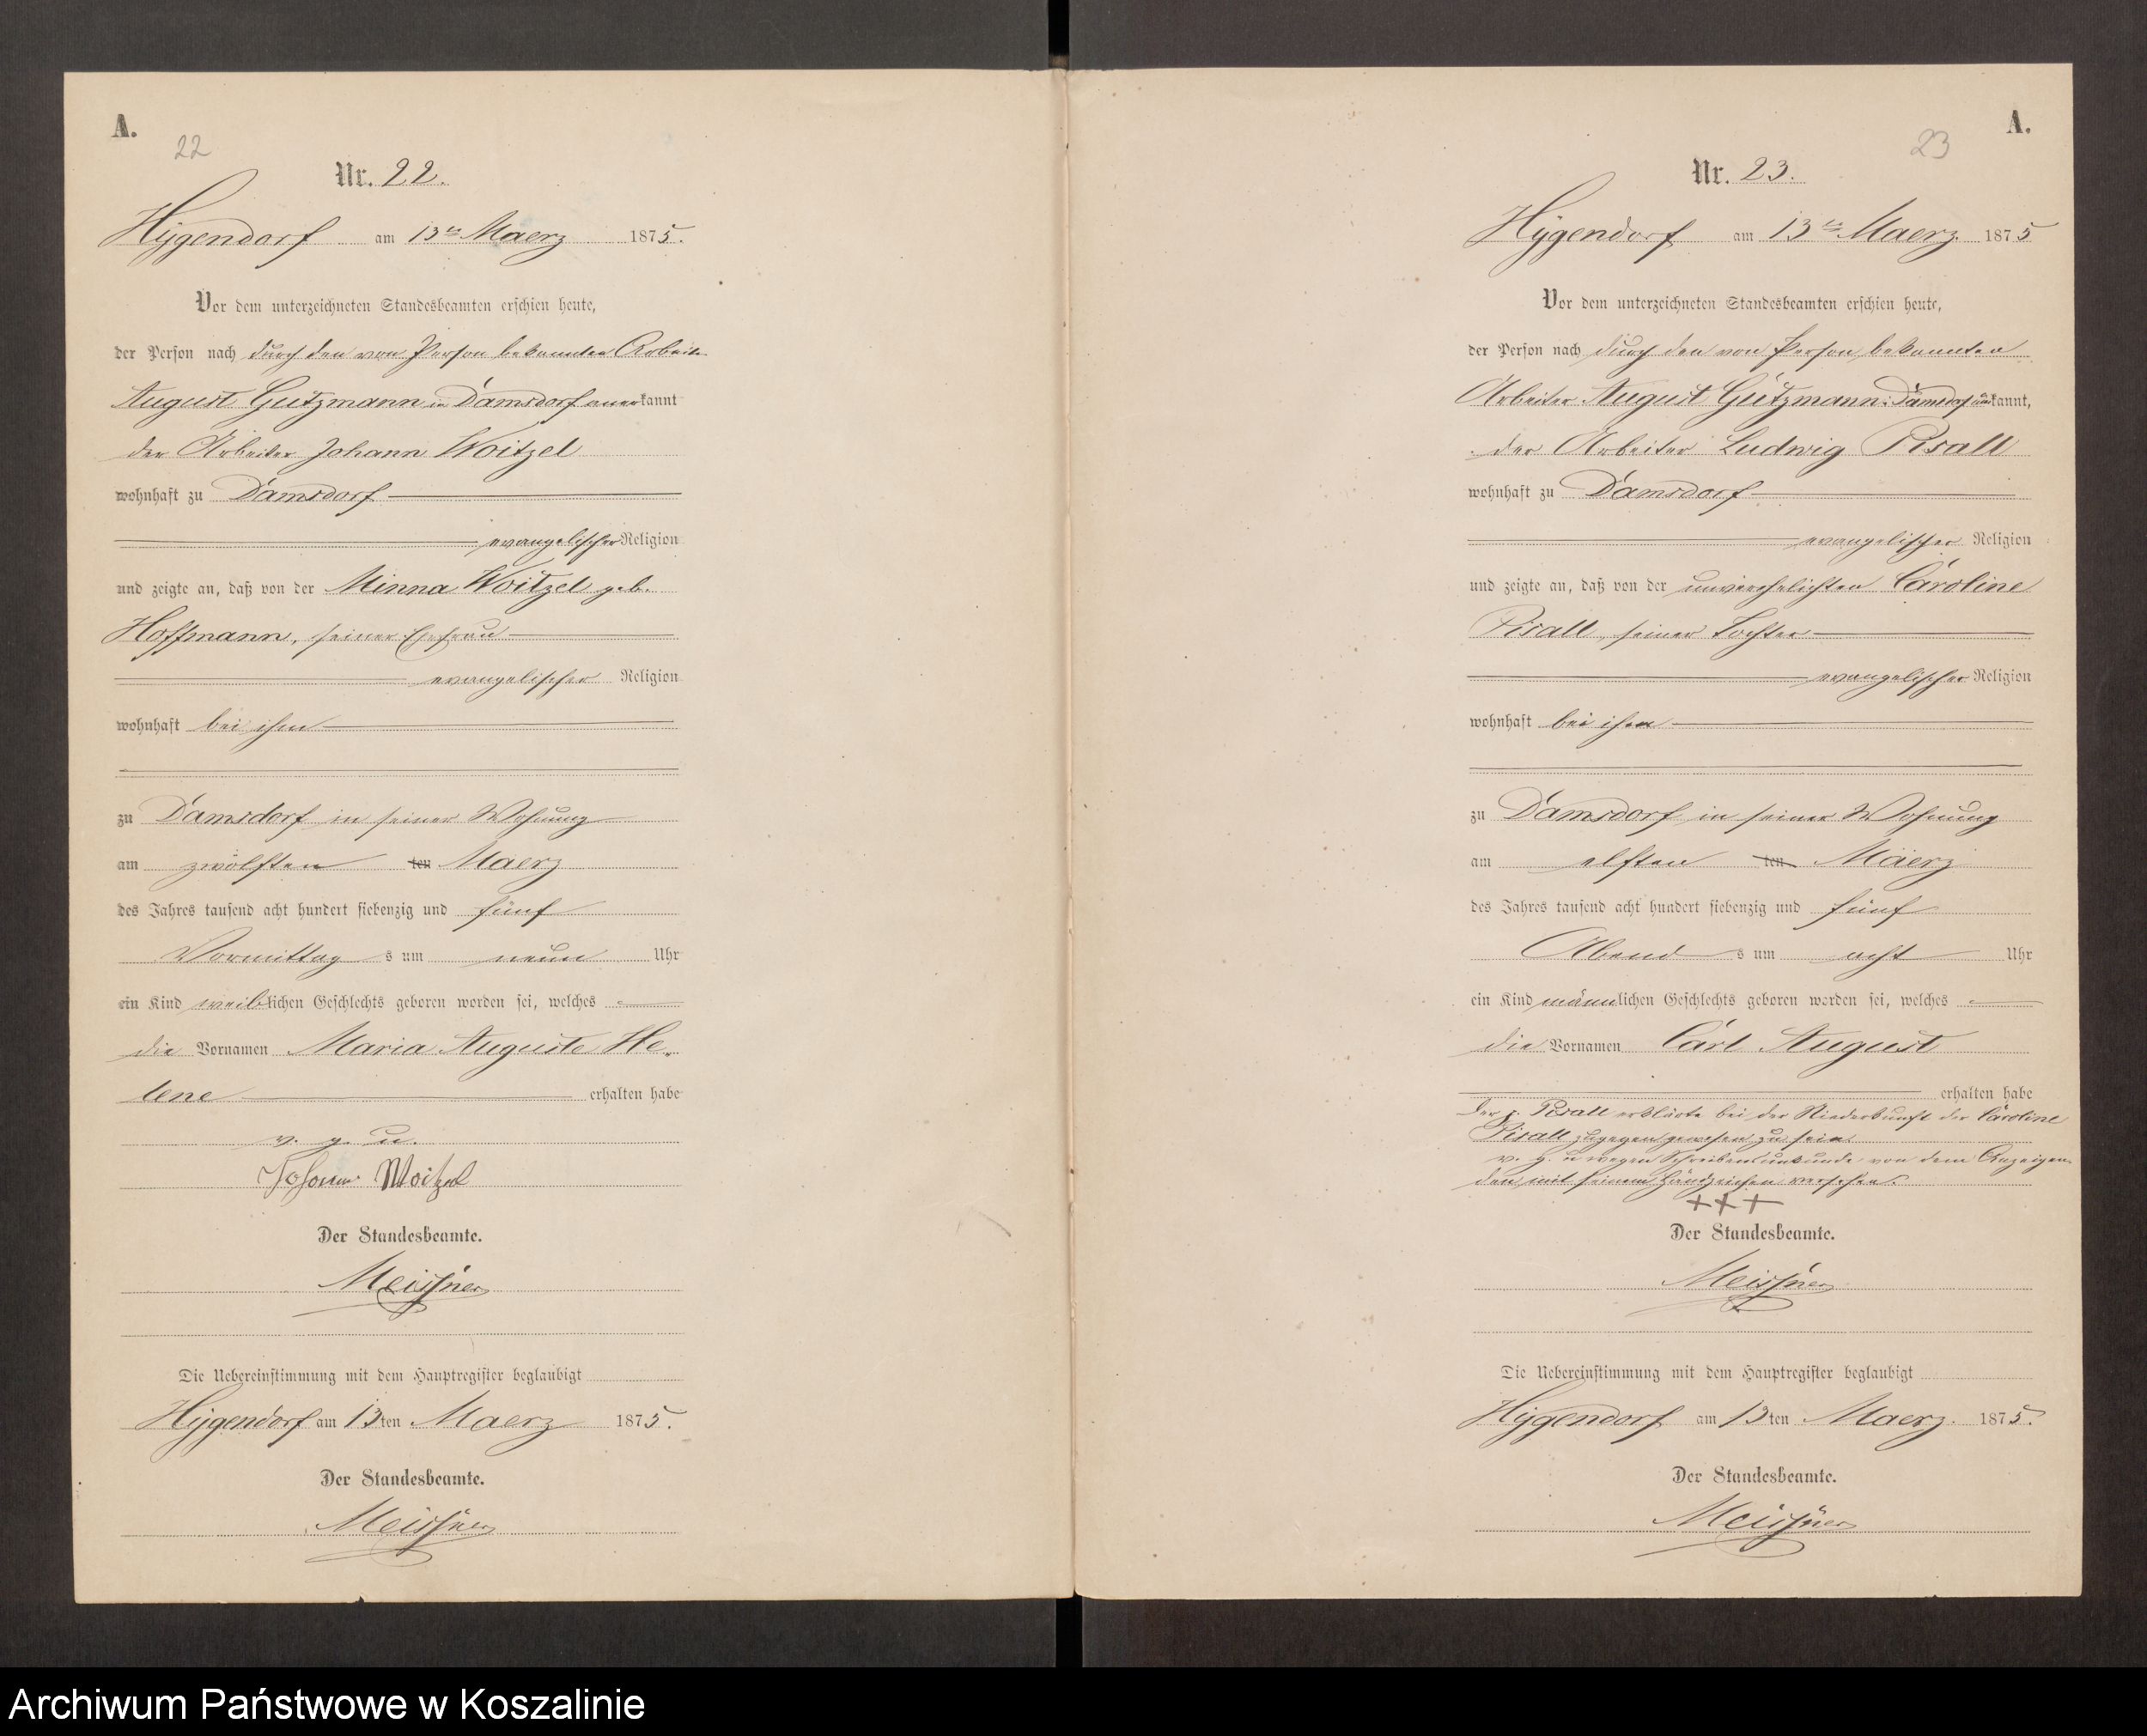 A.
22
Nr. 22.
Hygendorf am 13ten Maerz 1875.
Vor dem unterzeichneten Standesbeamten erschien heute,
der Person nach durch den von Person bekannten Arbeiter
August Gutzmann in Damsdorf anerkannt
der Arbeiter Johann Woitzel
wohnhaft zu Damsdorf
evangelischer Religion
und zeigte an, daß von der Minna Woitzel geb.
Hoffmann, seiner Ehefrau
evangelischer Religion
wohnhaft bei ihm
zu Damsdorf in seiner Wohnung
am zwölften ten Maerz
des Jahres tausend acht hundert siebenzig und fünf
Vormittag s um neun Uhr
ein Kind weiblichen Geschlechts geboren worden sei, welches
die Vornamen Maria Auguste He-
lene erhalten habe
v. g. u.
Johann Woitzel
Der Standesbeamte.
Meissner
Die Uebereinstimmung mit dem Hauptregister beglaubigt
Hygendorf am 13ten Maerz 1875.
Der Standesbeamte.
Meissner
A.
23
Nr. 23.
Hygendorf am 13ten Maerz 1875
Vor dem unterzeichneten Standesbeamten erschien heute,
der Person nach durch den von Person bekannten
Arbeiter August Gutzmann i. Damsdorf anerkannt,
der Arbeiter Ludwig Pisall
wohnhaft zu Damsdorf
evangelischer Religion
und zeigte an, daß von der unverehelichten Caroline
Pisall, seiner Tochter
evangelischer Religion
wohnhaft bei ihm
zu Damsdorf in seiner Wohnung
am elften ten Maerz
des Jahres tausend acht hundert siebenzig und fünf
Abend s um acht Uhr
ein Kind männlichen Geschlechts geboren worden sei, welches
die Vornamen Carl August
erhalten habe
Der p. Pisall erklärte bei der Niederkunft der Caroline
Pisall zugegen gewesen zu sein.
v. g. u wegen Schreibensunkunde von dem Anzeigen-
den mit seinem Handzeichen versehen.
+++
Der Standesbeamte.
Meissner
Die Uebereinstimmung mit dem Hauptregister beglaubigt
Hygendorf am 13ten Maerz. 1875.
Der Standesbeamte.
Meissner
Archiwum Państwowe w Koszalinie